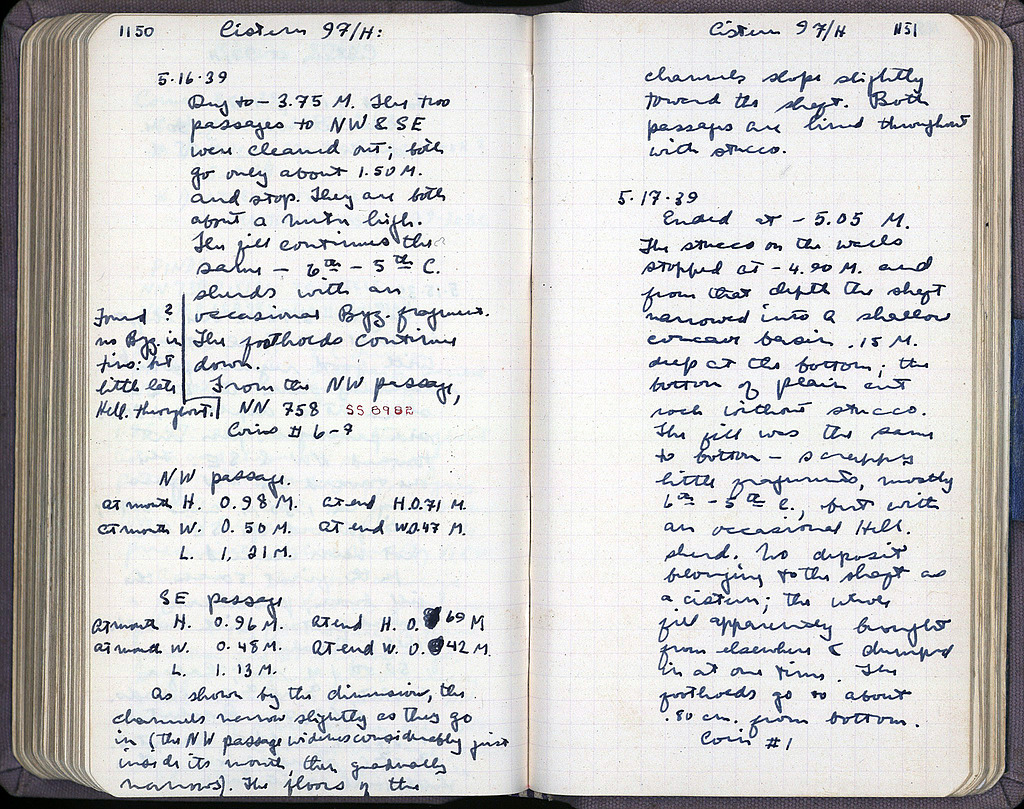 1150 Cistern 97/H:
5·16·39
Dug to – 3.75 M. The two
passages to NW & SE
were cleaned out; both
go only about 1.50 M.
and stop. They are both
about a meter high.
The fill continues the
same – 6th – 5th C.
sherds with an
occasional Byz. fragment.
The footholds continue
down.
Found ?
no Byz. in
this: but
little late
Hell. throughout.
From the NW passage,
NN 758 SS 8988
Coins # 6-9
NW passage.
at mouth H. 0.98 M. at end H. 0.71 M.
at mouth W. 0.50 M. at end W. 0.47 M.
L. 1.31 M.
SE passage
At mouth H. 0.96 M. at end H. 0. 69 M
at mouth W. 0.48 M. at end W. 0. 42 M.
L. 1.13 M.
As shown by the dimensions, the
channels narrow slightly as they go
in (the NW passage widens considerably just
inside its mouth, then gradually
narrows). The floors of the
Cistern 97/H 1151
channels slope slightly
toward the shaft. Both
passages are lined throughout
with stucco.
5·17·39
Ended at – 5.05 M.
The stucco on the walls
stopped at – 4.90 M. and
from that depth the shaft
narrowed into a shallow
concave basin .15 M.
deep at the bottom; the
bottom of plain cut
rock without stucco.
The fill was the same
to bottom – scrappy
little fragments, mostly
6th – 5th C., but with
an occasional Hell.
sherd. No deposit
belonging to the shaft as
a cistern; the whole
fill apparently brought
from elsewhere & dumped
in at one time. The
footholds go to about
.80 cm. from bottom.
Coin #1